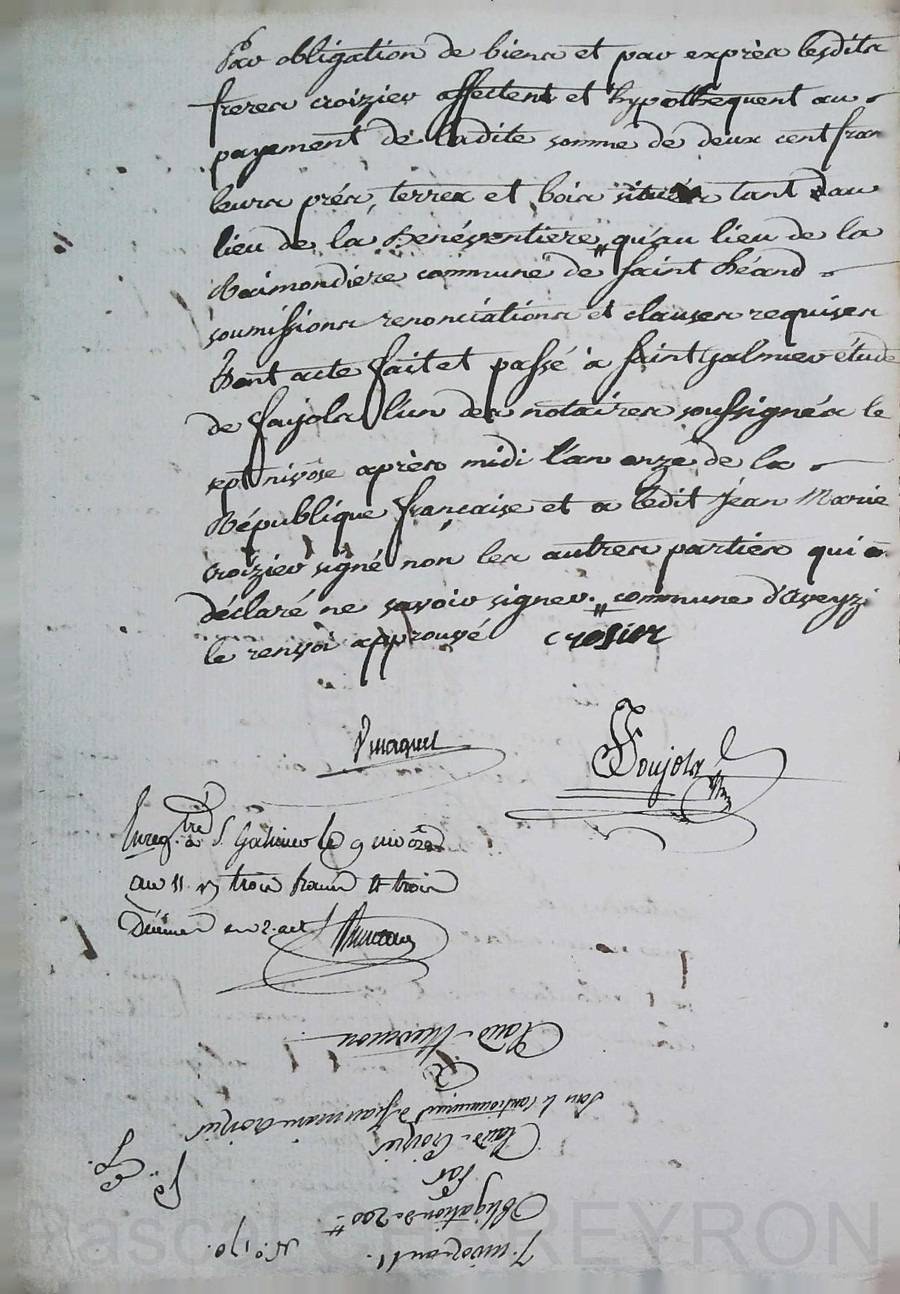 Par obligation de biens et par exprès lesdits
freres croizier affectent et hypothequent au
payement de ladite somme de deux cent fran
leurs prés, terres et bois situés tant au
lieu de la Benéventiere, qu'au lieu de la
Raimondiere commune de Saint héand
soumissions renonciations et clauses requises
Dont acte fait et passé à Saint galmier étude
de Foujols l'un des notaires soussignés le
sept nivôse après midi l'an onze de la
République française et a ledit Jean Marie
croizier signé non les autres parties qui
déclaré ne savoir signer. commune d'aveyzi
le renvoi approuvé crosier
Foujols
Enreg.tré à S. Galmier le 9 nivôse
an 11 trois francs et trois
Décimes
Obligation de 200
Par
Claude Croizier
Sous le cautionnement de Jean marie croizier
à
Claude thevenon
N.o 170.